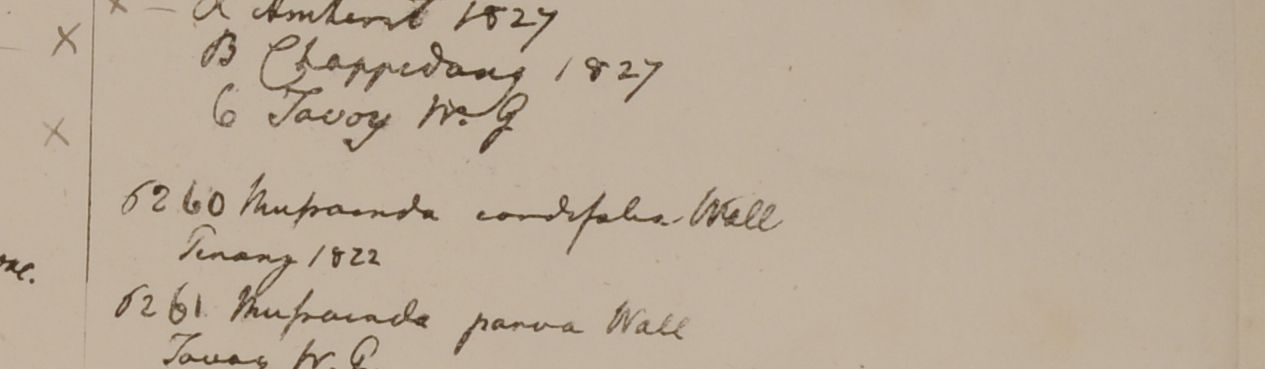 × — a Amherst 1827
× B Chappedang 1827
6 Tavoy W. G
×
6260 Mussaenda cordifolia Wall
Penang 1822
6261 Mussaenda parva Wall
Tavoy W. G